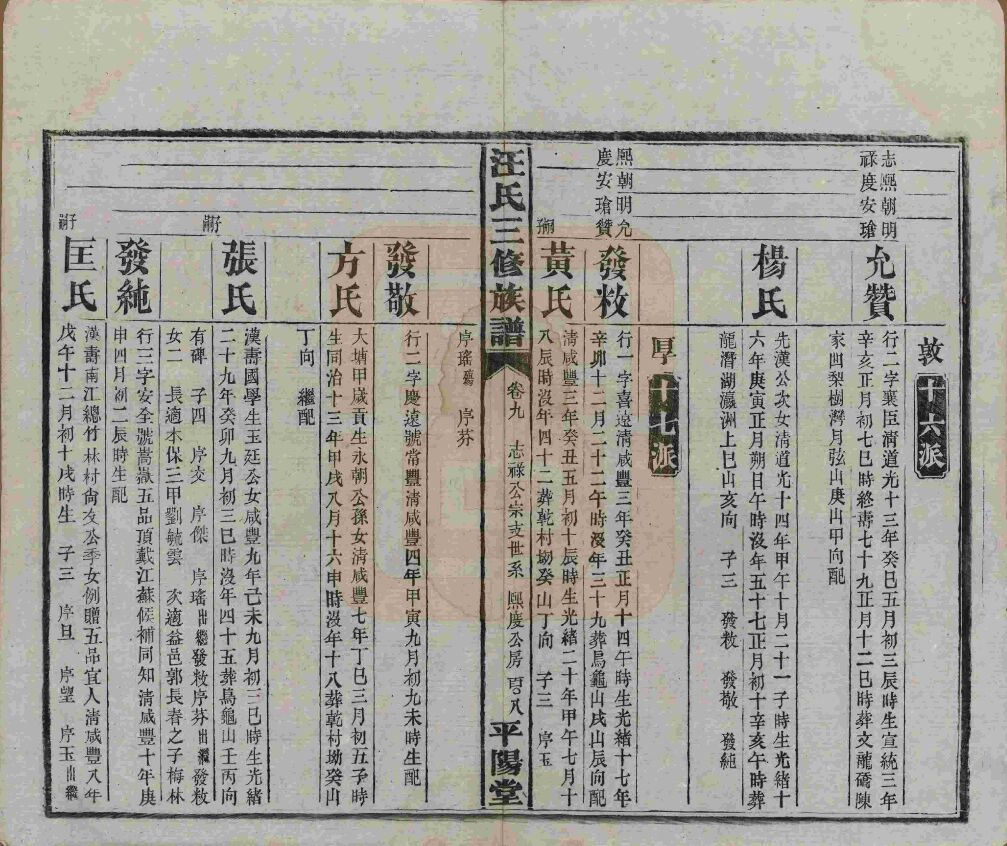 敦
十六派
志熙朝明
祿慶安瑲
允贊
行二字襄臣清道光十三年癸巳五月初三辰時生宣統三年
辛亥正月初七巳時終壽七十九正月十二巳時葬文龍礄陳
家凹梨樹灣月弦山庚山甲向配
楊氏
先漢公次女清道光十四年甲午十月二十一子時生光緒十
六年庚寅正月朔日午時沒年五十七正月初十辛亥午時葬
龍潛湖瀛洲上巳山亥向 子三 發敉 發敬 發純
厚
十七派
熙朝明允
慶安瑲贊
發敉
行一字喜遠清咸豐三年癸丑正月十四午時生光緒十七年
辛卯十二月二十二午時沒年三十九葬烏龜山戌山辰向配
黃氏
清咸豐三年癸丑五月初十辰時生光緒二十年甲午七月十
八辰時沒年四十二葬乾村坳癸山丁向 子三 序玉
序瑤 序芬
汪氏三修族譜
卷九 志祿公宗支世系 熙慶公房
平陽堂
發敬
行二字慶遠號常豐清咸豐四年甲寅九月初九未時生配
方氏
大埥甲歲貢生永朝公孫女清咸豐七年丁巳三月初五子時
生同治十三年甲戌八月十六申時沒年十八葬乾村坳癸山
丁向 繼配
張氏
漢壽國學生玉延公女咸豐九年己未九月初三巳時生光緒
二十九年癸卯九月初三巳時沒年四十五葬烏龜山壬丙向
有碑 子四 序交 序傑 序瑤出繼發敉序芬出繼發敉
女二 長適本保三甲劉毓雲 次適益邑郭長春之子梅林
發純
行三字安全號嵩嶽五品頂戴江蘇候補同知清咸豐十年庚
申四月初二辰時生配
匡氏
漢壽南江總竹林村尙友公季女例贈五品宜人清咸豐八年
戊午十二月初十戌時生 子三 序旦 序望 序玉出繼